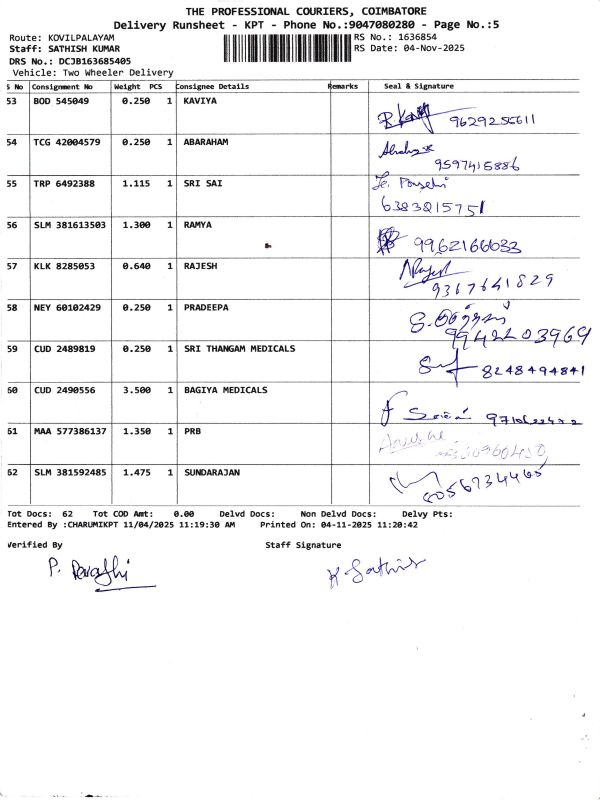 THE PROFESSIONAL COURIERS, COIMBATORE
Delivery Runsheet - KPT - Phone No.:9047080280 - Page No.:5
Route: KOVILPALAYAM RS No.: 1636854
Staff: SATHISH KUMAR RS Date: 04-Nov-2025
DRS No.: DCJB163685405
Vehicle: Two Wheeler Delivery
S No Consignment No Weight PCS Consignee Details Remarks Seal & Signature
53 BOD 545049 0.250 1 KAVIYA
9629255611
54 TCG 42004579 0.250 1 ABARAHAM
9597415886
55 TRP 6492388 1.115 1 SRI SAI
6383215751
56 SLM 381613503 1.300 1 RAMYA
9962166033
57 KLK 8285053 0.640 1 RAJESH
9367641829
58 NEY 60102429 0.250 1 PRADEEPA
9942203969
59 CUD 2489819 0.250 1 SRI THANGAM MEDICALS
8248494841
60 CUD 2490556 3.500 1 BAGIYA MEDICALS
61 MAA 577386137 1.350 1 PRB
62 SLM 381592485 1.475 1 SUNDARAJAN
8056734465
Tot Docs: 62 Tot COD Amt: 0.00 Delvd Docs: Non Delvd Docs: Delvy Pts:
Entered By :CHARUMIKPT 11/04/2025 11:19:30 AM Printed On: 04-11-2025 11:20:42
Verified By Staff Signature
K Sathis